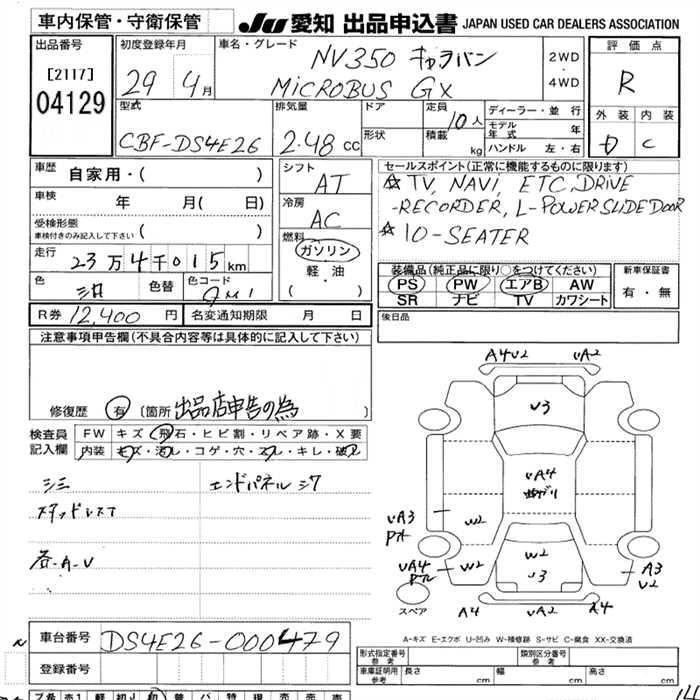 車内保管・守衛保管 JU 愛知 出品申込書 JAPAN USED CAR DEALERS ASSOCIATION
出品番号 初度登録年月 車名・グレード 評価点
[2117] 29 4月 NV350 キャラバン 2WD ・ 4WD R
04129 MiCROBUS GX
型式 排気量 ドア 定員 10人 ディーラー・並行 外装 内装
CBF-DS4E26 2.48cc 形状 積載 kg モデル年式 年 D C
ハンドル 左・右
車歴 自家用・( ) シフト AT セールスポイント(正常に機能するものに限ります)
車検 年 月( 日) 冷房 AC ☆TV, NAVI, ETC, DRIVE
受検形態 -RECORDER, L-POWERSLIDEDOOR
車検付きのみ記入して下さい ( ) 燃料 ☆10-SEATER
走行 23万4千015km ガソリン
軽・油
色 色替 色コード ( ・ ) 装備品(純正品に限り○をつけてください) 新車保証書
PS PW エアB AW 有・無
SR ナビ TV カワシート
R券 12,400円 名変通知期限 月 日 後日品
注意事項申告欄(不具合内容等は具体的に記入して下さい)
修復歴 有 [箇所 出品店申告の為
検査員記入欄 FW キズ・飛石・ヒビ割・リペア跡・X要
内装 キズ・汚レ・コゲ・穴・スレ・キレ・破レ
エンドパネル
各-A-U
A4U2 UA2
U3
UA4
UA3 W2
W2
UA4 W2 U3 A3
U2
スペア A4 UA2 A4
A-キズ E-エクボ U-凹み W-補修跡 S-サビ C-腐食 XX-交換済
車台番号 DS4E26-000479
登録番号
形式指定番号 参考 類別区分番号 参考
車庫証明用 参考 長さ cm 幅 cm 高さ cm